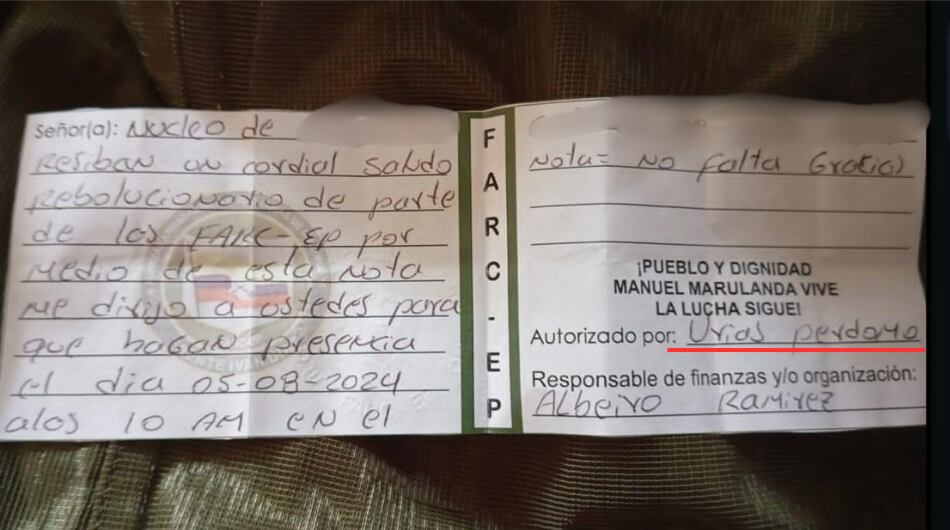 Señor(a): Nucleo de
Resiban un cordial saludo
Rebolucionario de parte
de las FARC-EP por
Medio de esta Nota
Me dirijo a ustedes para
que hagan presencia
el dia 05-08-2024
alos 10 AM eN el
FARC-EP
Nota= No falta Gracias
¡PUEBLO Y DIGNIDAD
MANUEL MARULANDA VIVE
LA LUCHA SIGUE!
Autorizado por: Urias perdomo
Responsable de finanzas y/o organización:
Albeiro Ramirez